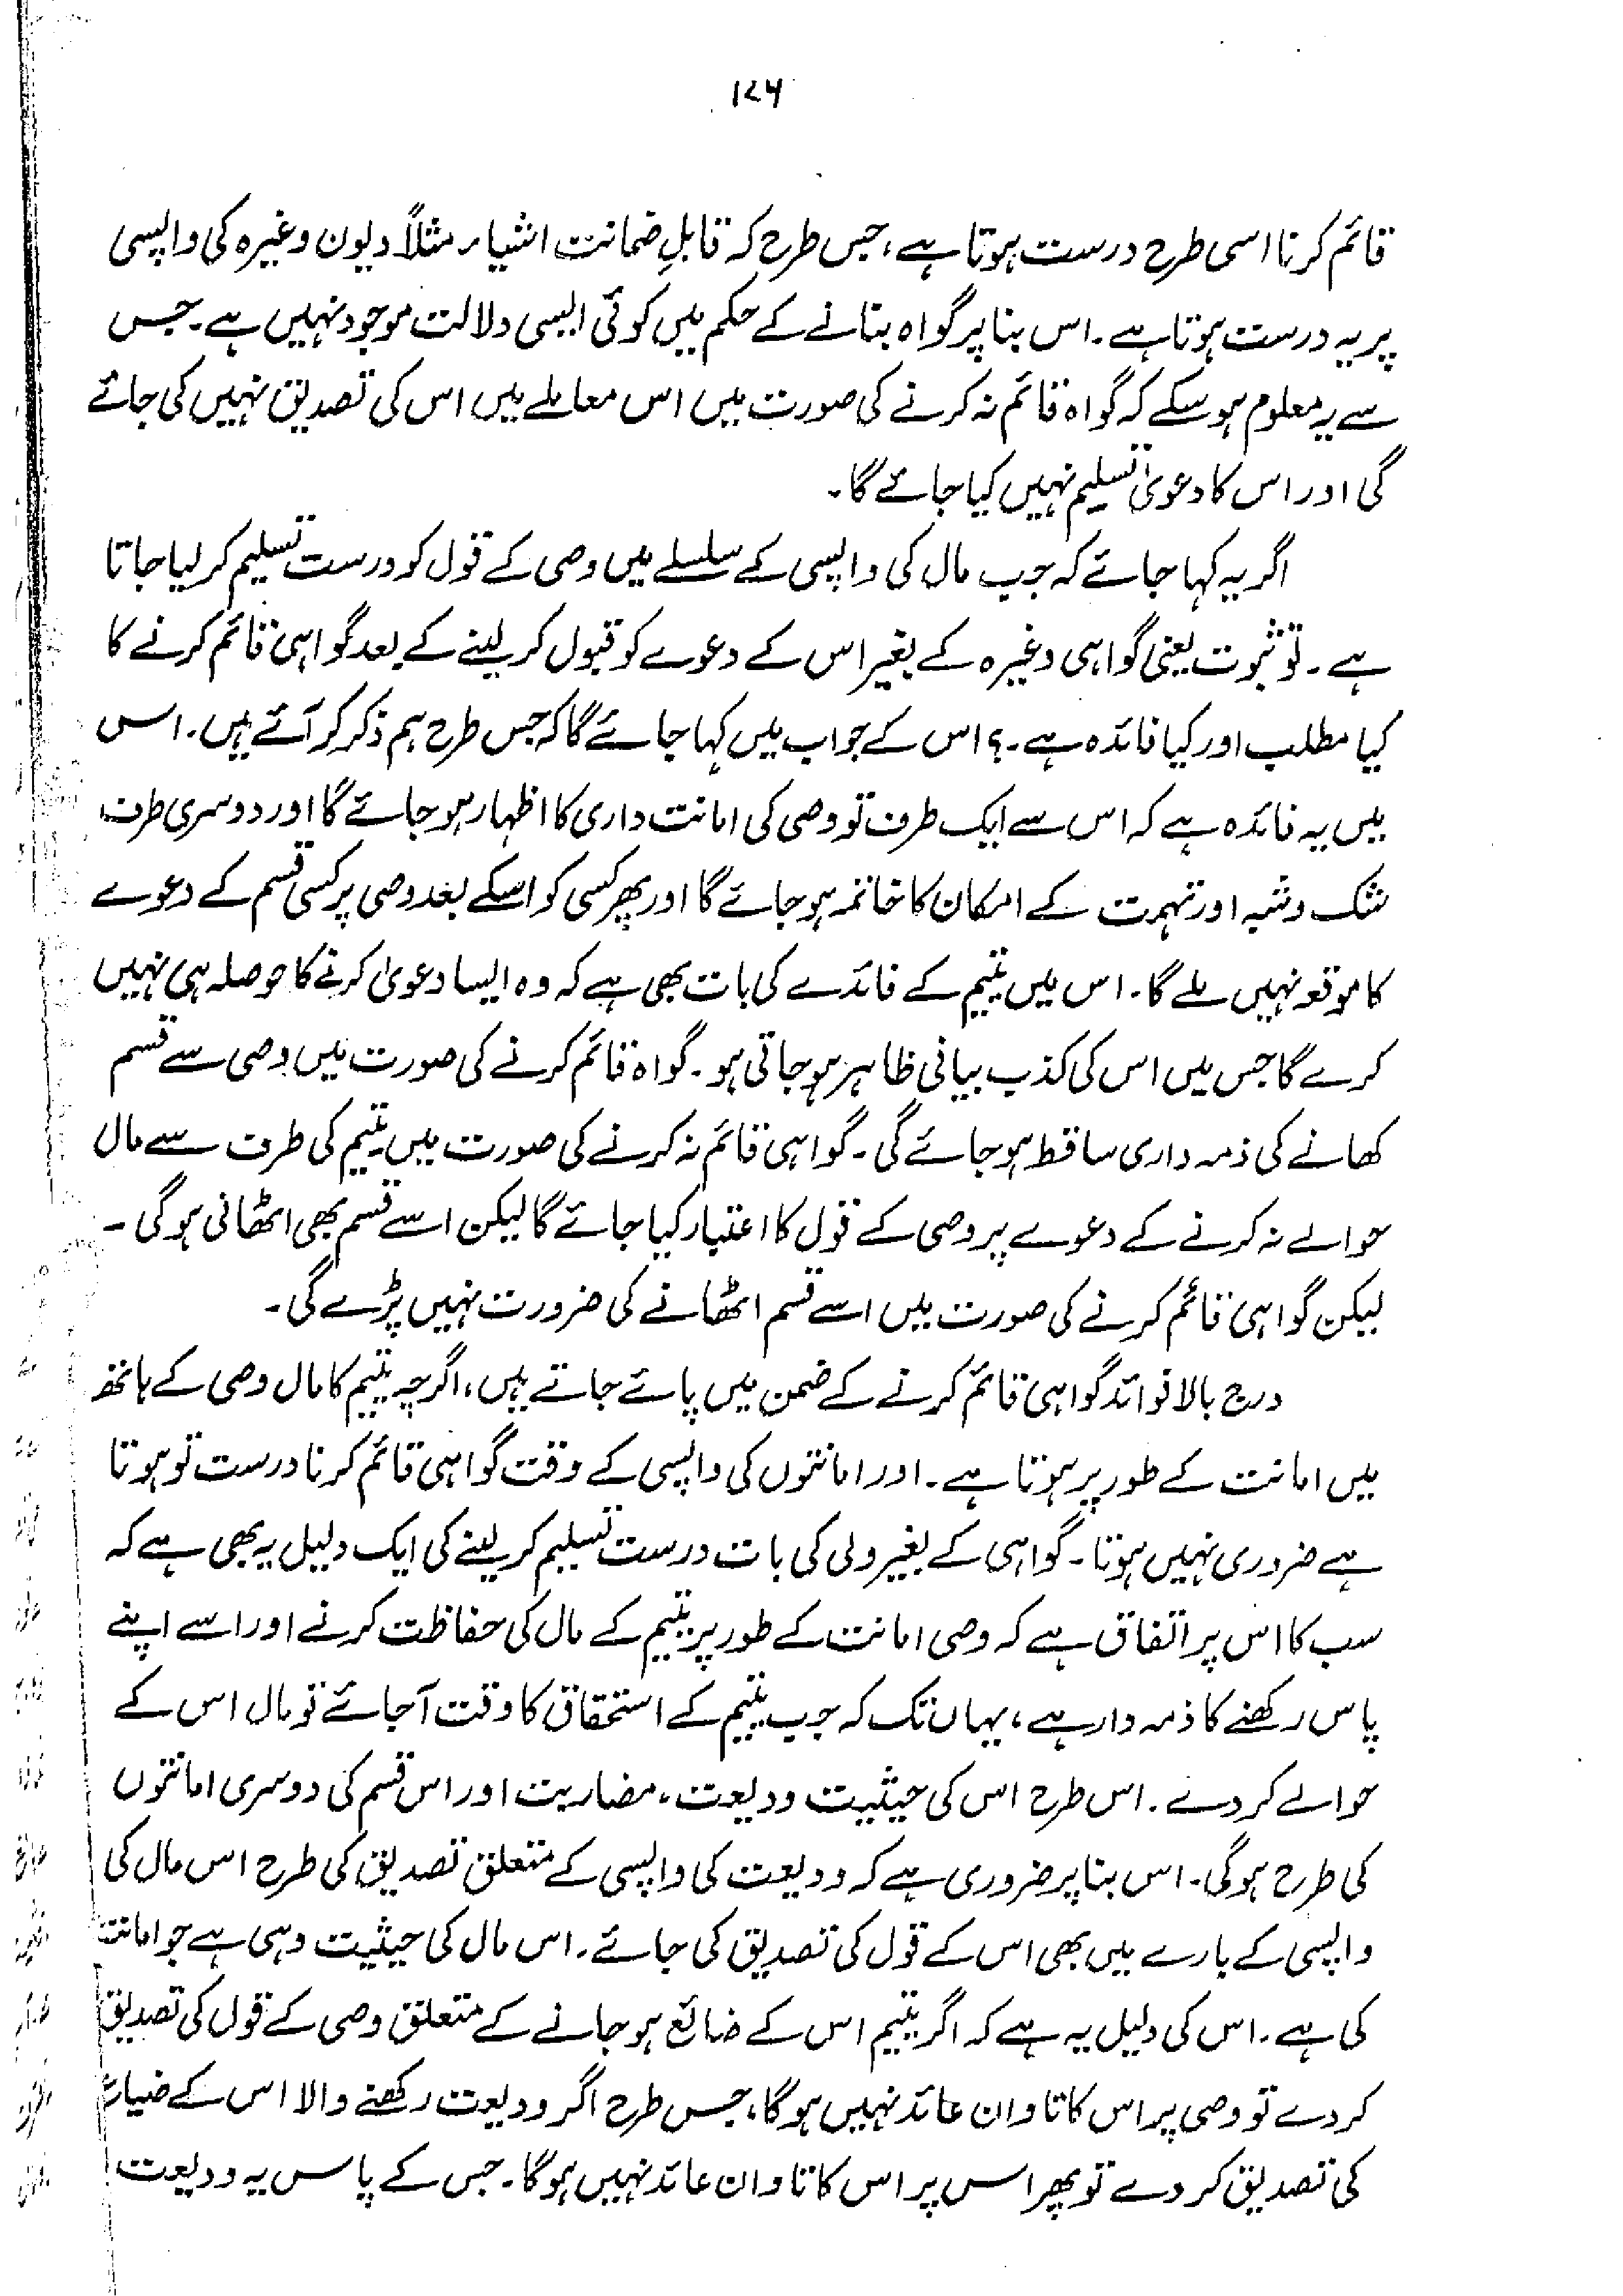 ۱۷۶
قائم کرنا اسی طرح درست ہوتا ہے، جس طرح کہ قابلِ ضمانت اشیاء مثلاً دیون وغیرہ کی واپسی
پر یہ درست ہوتا ہے۔ اس بنا پر گواہ بنانے کے حکم میں کوئی ایسی دلالت موجود نہیں ہے۔ جس
سے یہ معلوم ہو سکے کہ گواہ قائم نہ کرنے کی صورت میں اس معاملے میں اس کی تصدیق نہیں کی جائے
گی اور اس کا دعویٰ تسلیم نہیں کیا جائے گا۔
اگر یہ کہا جائے کہ جب مال کی واپسی کے سلسلے میں وصی کے قول کو درست تسلیم کر لیا جاتا
ہے۔ تو ثبوت یعنی گواہی وغیرہ کے بغیر اس کے دعوے کو قبول کر لینے کے بعد گواہی قائم کرنے کا
کیا مطلب اور کیا فائدہ ہے۔؟ اس کے جواب میں کہا جائے گا کہ جس طرح ہم ذکر کر آئے ہیں۔ اس
میں یہ فائدہ ہے کہ اس سے ایک طرف تو وصی کی امانت داری کا اظہار ہو جائے گا اور دوسری طرف
شک و شبہ اور تہمت کے امکان کا خاتمہ ہو جائے گا اور پھر کسی کو اسکے بعد وصی پر کسی قسم کے دعوے
کا موقعہ نہیں ملے گا۔ اس میں یتیم کے فائدے کی بات بھی ہے کہ وہ ایسا دعویٰ کرنے کا حوصلہ ہی نہیں
کرے گا جس میں اس کی کذب بیانی ظاہر ہو جاتی ہو۔ گواہ قائم کرنے کی صورت میں وصی سے قسم
کھانے کی ذمہ داری ساقط ہو جائے گی۔ گواہی قائم نہ کرنے کی صورت میں یتیم کی طرف سے مال
حوالے نہ کرنے کے دعوے پر وصی کے قول کا اعتبار کیا جائے گا لیکن اسے قسم بھی اٹھانی ہو گی۔
لیکن گواہی قائم کرنے کی صورت میں اسے قسم اٹھانے کی ضرورت نہیں پڑے گی۔
درج بالا فوائد گواہی قائم کرنے کے ضمن میں پائے جاتے ہیں، اگرچہ یتیم کا مال وصی کے ہاتھ
میں امانت کے طور پر ہوتا ہے۔ اور امانتوں کی واپسی کے وقت گواہی قائم کرنا درست تو ہوتا
ہے ضروری نہیں ہوتا۔ گواہی کے بغیر ولی کی بات درست تسلیم کر لینے کی ایک دلیل یہ بھی ہے کہ
سب کا اس پر اتفاق ہے کہ وصی امانت کے طور پر یتیم کے مال کی حفاظت کرنے اور اسے اپنے
پاس رکھنے کا ذمہ دار ہے، یہاں تک کہ جب یتیم کے استحقاق کا وقت آ جائے تو مال اس کے
حوالے کر دے۔ اس طرح اس کی حیثیت ودیعت، مضاربت اور اس قسم کی دوسری امانتوں
کی طرح ہو گی۔ اس بنا پر ضروری ہے کہ ودیعت کی واپسی کے متعلق تصدیق کی طرح اس مال کی
واپسی کے بارے میں بھی اس کے قول کی تصدیق کی جائے۔ اس مال کی حیثیت وہی ہے جو امانت
کی ہے۔ اس کی دلیل یہ ہے کہ اگر یتیم اس کے ضائع ہو جانے کے متعلق وصی کے قول کی تصدیق
کر دے تو وصی پر اس کا تاوان عائد نہیں ہو گا، جس طرح اگر ودیعت رکھنے والا اس کے ضیاع
کی تصدیق کر دے تو پھر اس پر اس کا تاوان عائد نہیں ہو گا۔ جس کے پاس یہ ودیعت